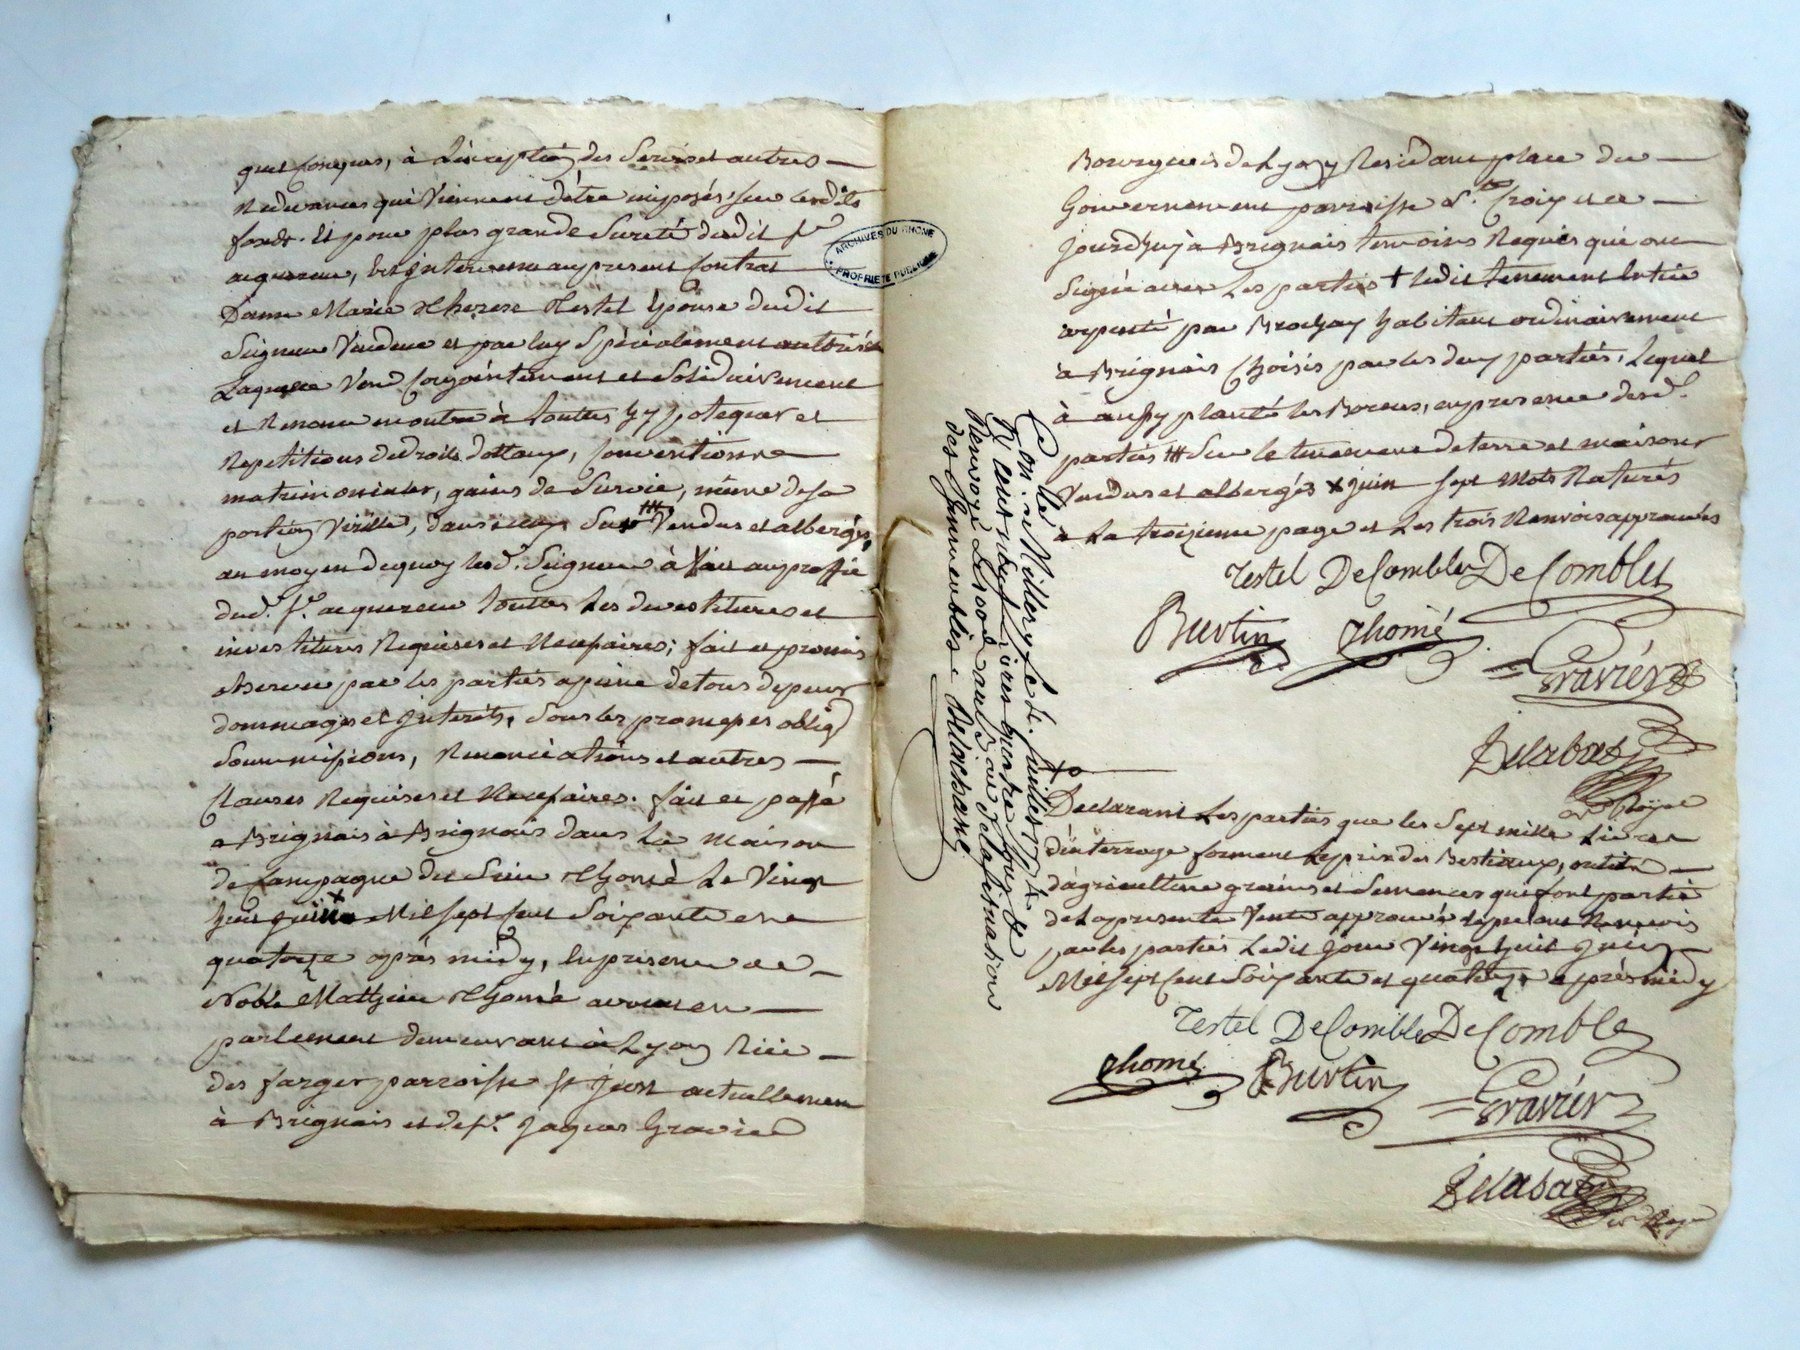 quelconques, à L'exception des Servis et autres
Redevances qui Viennent d'être imposés sur lesdits
fonds. Et pour plus grande Sureté dudit sr
acquereur, est intervenu au present Contrat
Dame Marie Therese Testel Epouse dudit
Seigneur Vendeur et par luy Spécialement autorisée
Laquelle Vend Conjointement et Solidairement
et Renonce à touttes hypoteques et
Repetitions de droits dottaux, Conventions
matrimoniales, gains de Survie, même de sa
portion Virille, dans iceux Sus Vendus et albergés,
au moyen de quoy led. Seigneur à fait au proffit
dud. sr. acquereur touttes Les devestitures et
investitures Requises et Necessaires; fait et promis
observer par les parties a peine de tous depens
dommages et Interets, Sous les promesses oblig
Soummissions, Renonciations et autres
Clauses Requises et Necessaires. fait et passé
a Brignais à Brignais dans La Maison
de Campagne du Sieur Thomé Le Vingt
huit Mil Sept Cent Soixante et
quatorze après midy, En presence de
Noble Matthieu Thomé avocat en
parlement demeurant à Lyon Rüe
des farges parroisse St Just actuellement
à Brignais et de sr. Jaques Gravier
ARCHIVES DU RHONE
PROPRIETE PUBLIQUE
Bourgeois de Lyon y Residant place du
Gouvernement parroisse Ste. Croix et ce
jourdhuy à Brignais temoins Requis qui ont
Signé avec Les parties + ledit tenement Entier
arpenté par Brochay habitant ordinairement
à Brignais Choisis par les deux parties, Lequel
à aussy planté les Bornes, en presence desd.
parties ## Sur le tenement de terre et maisons
Vendus et albergés x juin Sept Mots Raturés
a La troizieme page et Les trois Renvois approuvés
Testel DeCombles DeCombles
Burtin Thomé
Gravier
Delabat
Nore Royal
Declarant Les parties que les Sept mille Livres
d'interroge forment Le prix des Bestiaux, outils
d'agriculture grains et Semences qui font partie
de La presente Vente approuvé le present Renvoi
par les parties Ledit Jour Vingt huit Juin
Mil Sept Cent Soixante et quatorze après midy
Testel DeCombles DeCombles
Thomé Burtin
Gravier
Delabat
Nore Royal
Con. à Millery Le 4. juillet 1774
Renvoyé Le sol
des Immeubles